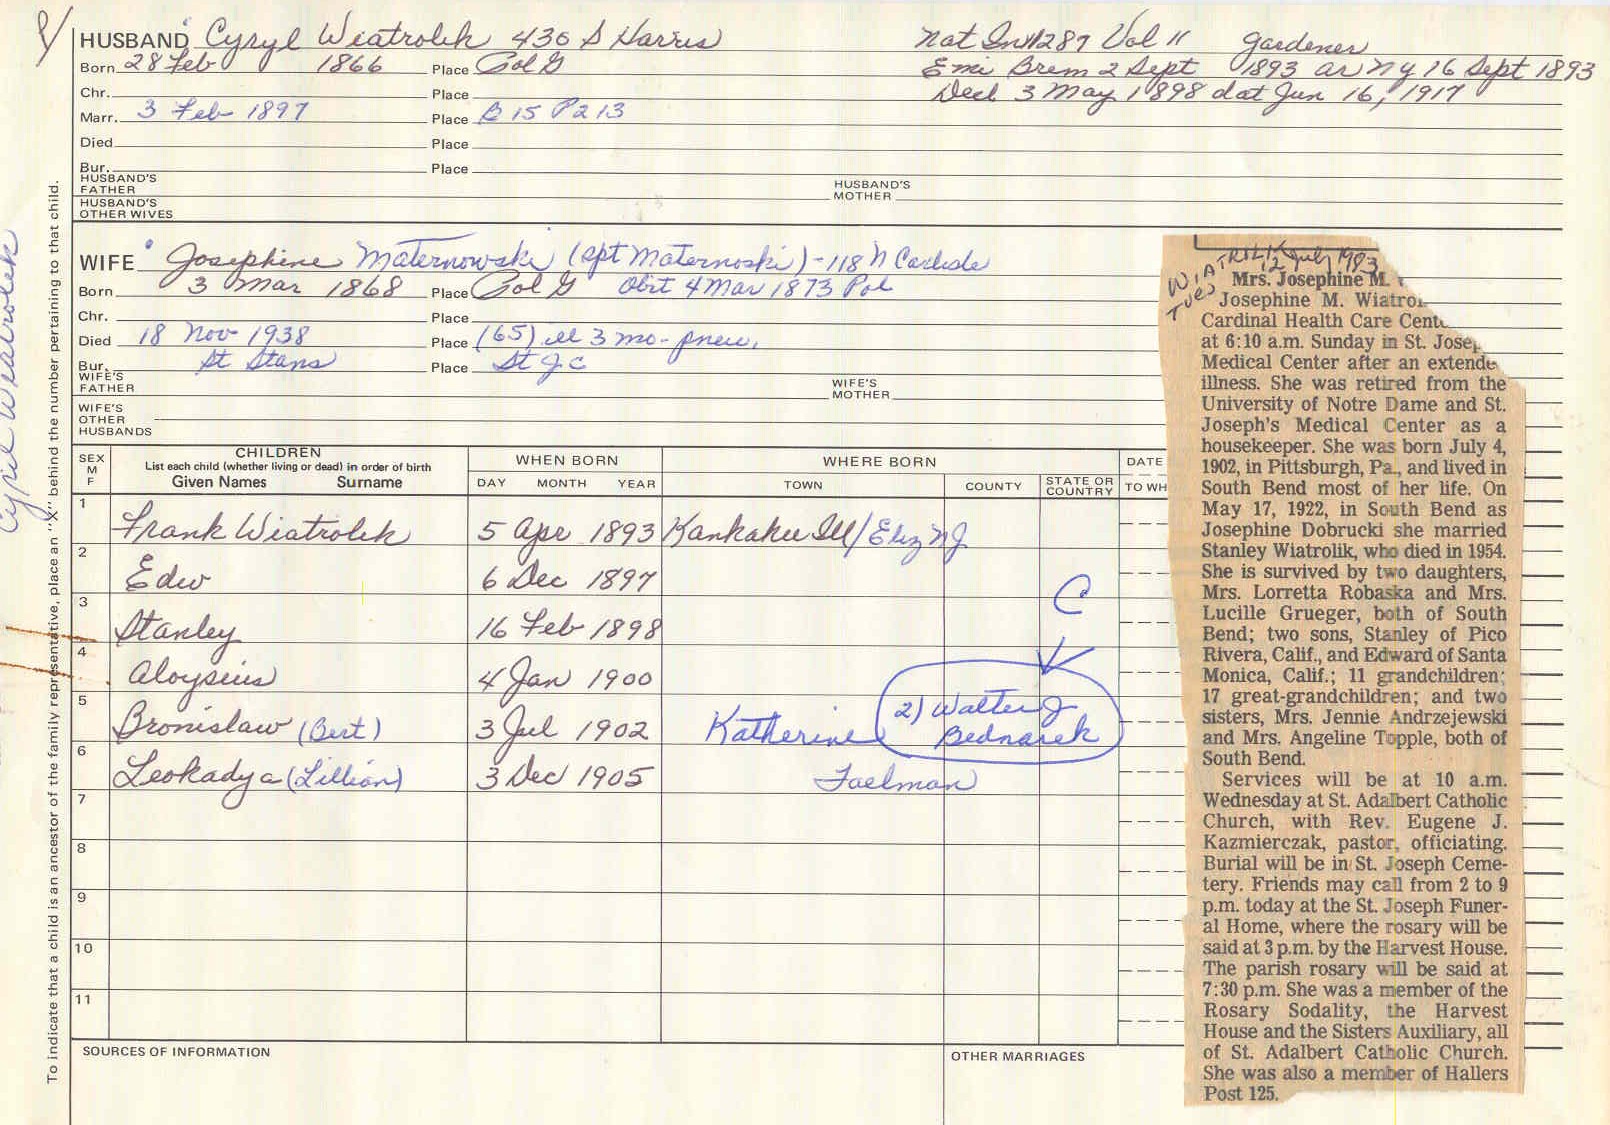 HUSBAND Cyryl Wiatrolik 430 S Harris Nat In 1289 Vol 11 gardener
Born 28 Feb 1866 Place Pol G Emi Brem 2 Sept 1893 ar NY 16 Sept 1893
Chr. Place Decl 3 May 1898 dat Jun 16, 1917
Marr. 3 Feb 1897 Place B 15 P213
Died Place
Bur. Place
HUSBAND'S FATHER HUSBAND'S MOTHER
HUSBAND'S OTHER WIVES
WIFE Josephine Maternowski (spt Maternoski) - 118 N Carlisle
Born 3 Mar 1868 Place Pol G Obit 4 Mar 1873 Pol
Chr. Place
Died 18 Nov 1938 Place (65) ill 3 mo - pneu.
Bur. St Stans Place St J C
WIFE'S FATHER WIFE'S MOTHER
WIFE'S OTHER HUSBANDS
SEX M F
CHILDREN
List each child (whether living or dead) in order of birth
Given Names Surname
WHEN BORN
DAY MONTH YEAR
WHERE BORN
TOWN COUNTY STATE OR COUNTRY
DATE
TO WH
1 Frank Wiatrolik 5 Apr 1893 Kankakee Ill/Eliz NJ
2 Edw 6 Dec 1897
C
3 Stanley 16 Feb 1898
4 Aloysius 4 Jan 1900
5 Bronislaw (Bert) 3 Jul 1902 Katherine 2) Walter J Bednarek
6 Leokadya (Lillian) 3 Dec 1905 Taelman
7
8
9
10
11
SOURCES OF INFORMATION
OTHER MARRIAGES
To indicate that a child is an ancestor of the family representative, place an "X" behind the number pertaining to that child.
Cyril Wiatrolik
WIATRILIK
Tues 12 July 1983
Mrs. Josephine M.
Josephine M. Wiatro
Cardinal Health Care Cent
at 6:10 a.m. Sunday in St. Josep
Medical Center after an extende
illness. She was retired from the
University of Notre Dame and St.
Joseph's Medical Center as a
housekeeper. She was born July 4,
1902, in Pittsburgh, Pa., and lived in
South Bend most of her life. On
May 17, 1922, in South Bend as
Josephine Dobrucki she married
Stanley Wiatrolik, who died in 1954.
She is survived by two daughters,
Mrs. Lorretta Robaska and Mrs.
Lucille Grueger, both of South
Bend; two sons, Stanley of Pico
Rivera, Calif., and Edward of Santa
Monica, Calif.; 11 grandchildren;
17 great-grandchildren; and two
sisters, Mrs. Jennie Andrzejewski
and Mrs. Angeline Topple, both of
South Bend.
Services will be at 10 a.m.
Wednesday at St. Adalbert Catholic
Church, with Rev. Eugene J.
Kazmierczak, pastor, officiating.
Burial will be in St. Joseph Ceme-
tery. Friends may call from 2 to 9
p.m. today at the St. Joseph Funer-
al Home, where the rosary will be
said at 3 p.m. by the Harvest House.
The parish rosary will be said at
7:30 p.m. She was a member of the
Rosary Sodality, the Harvest
House and the Sisters Auxiliary, all
of St. Adalbert Catholic Church.
She was also a member of Hallers
Post 125.